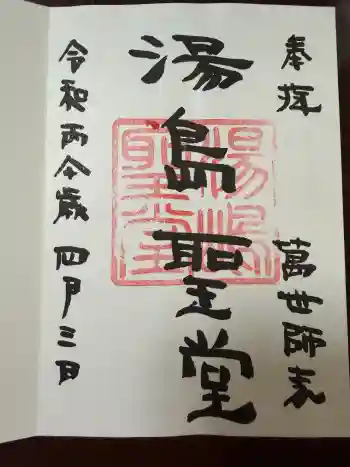 奉拝
萬世師表
湯島聖堂
令和丙午歳 四月三日
湯嶋
聖堂